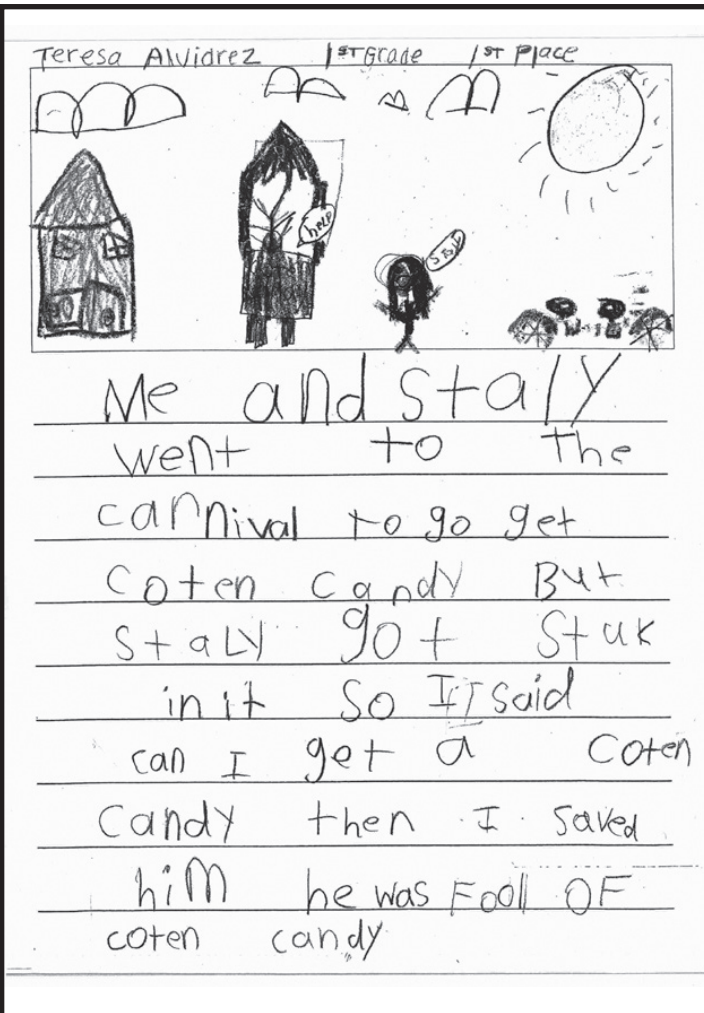 Teresa Alvidrez 1ST Grade 1ST Place
help
Me and Staly
went to the
carnival to go get
coten candy But
staLy got stuk
in it so I said
can I get a coten
candy then I saved
him he was Fooll OF
coten candy